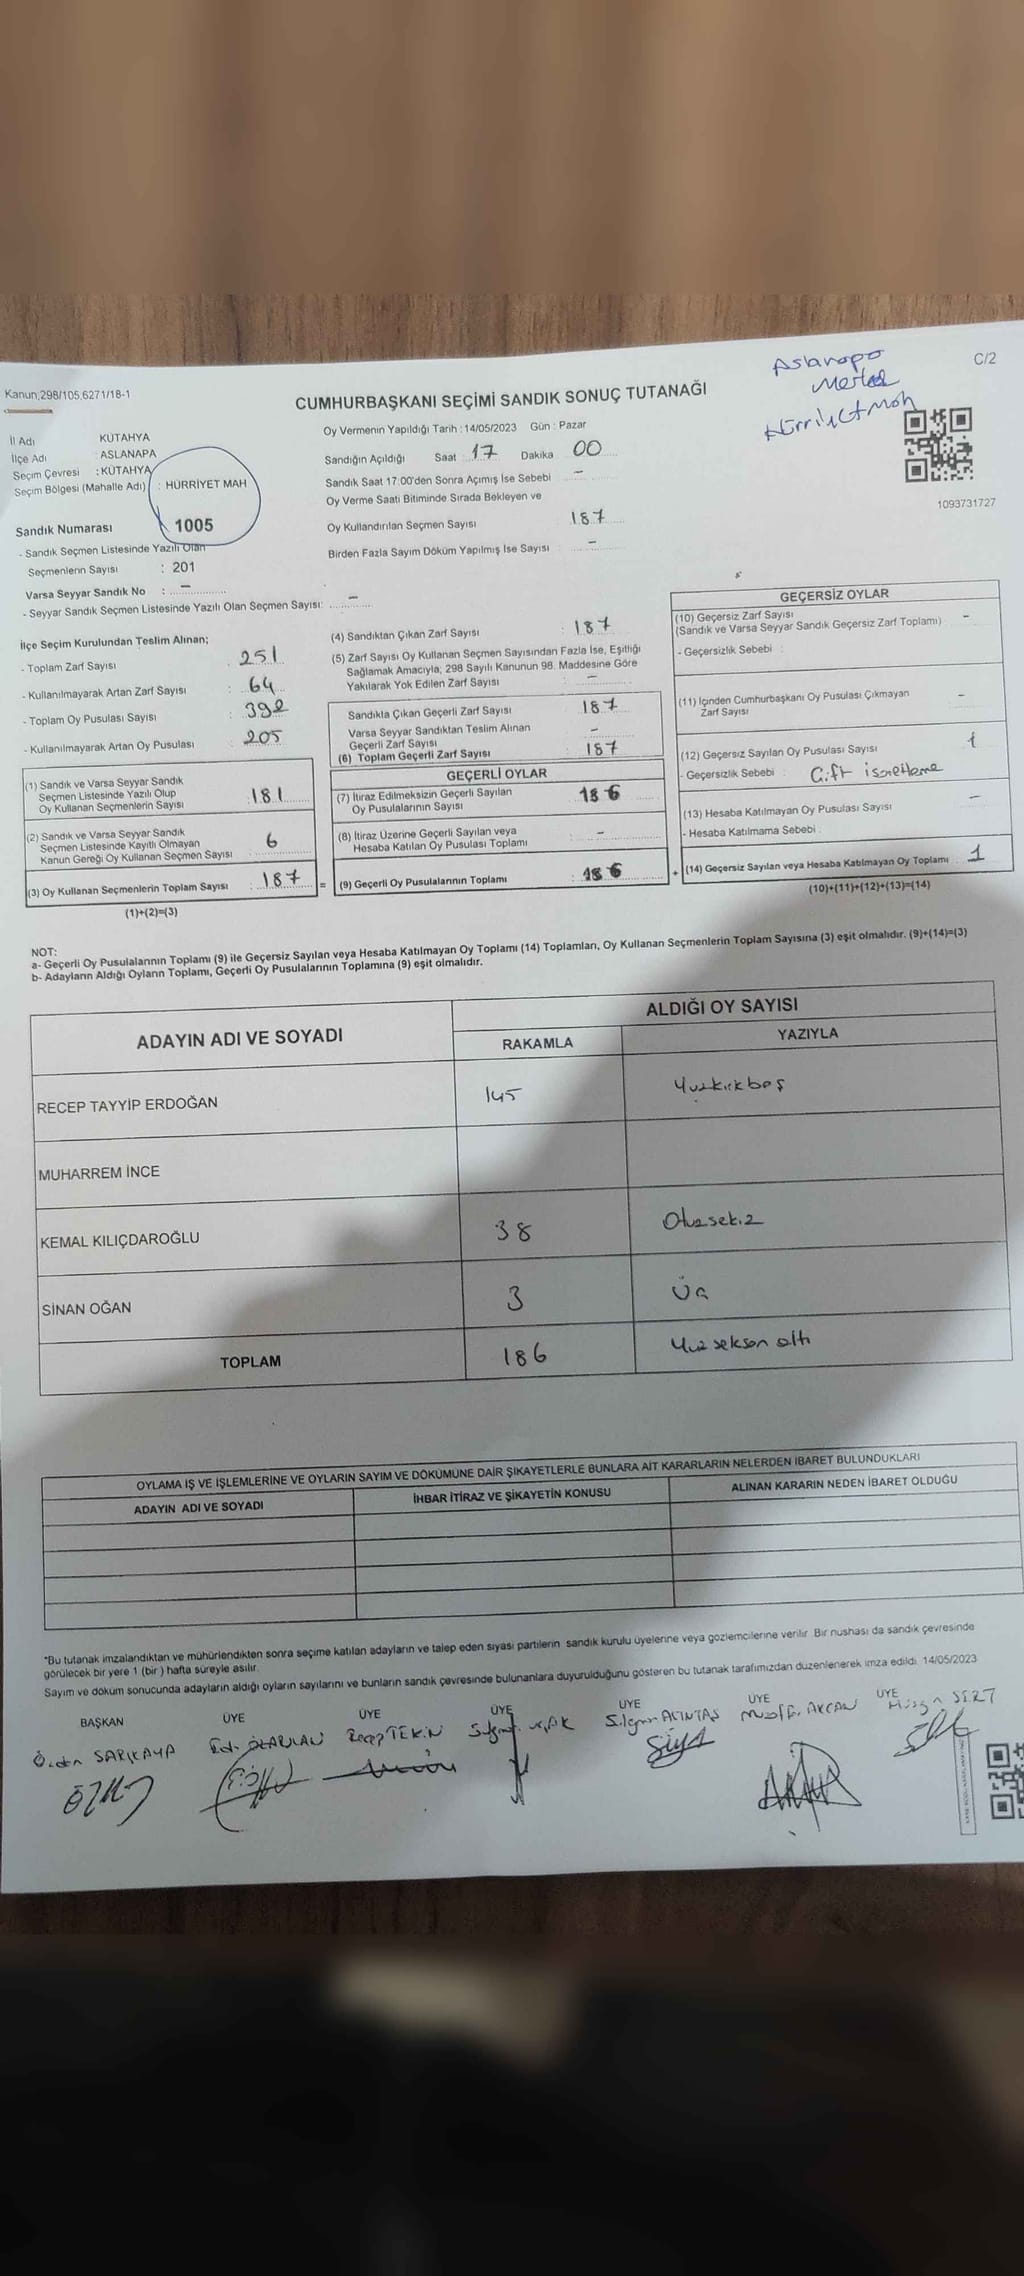 Aslanapa
C/2
Merkez
Hürriyet Mah
Kanun;298/105,6271/18-1
CUMHURBAŞKANI SEÇİMİ SANDIK SONUÇ TUTANAĞI
İl Adı KÜTAHYA
İlçe Adı : ASLANAPA
Seçim Çevresi : KÜTAHYA
Seçim Bölgesi (Mahalle Adı) : HÜRRİYET MAH
Sandık Numarası 1005
- Sandık Seçmen Listesinde Yazılı Olan
Seçmenlerin Sayısı : 201
Varsa Seyyar Sandık No : -
- Seyyar Sandık Seçmen Listesinde Yazılı Olan Seçmen Sayısı: -
Oy Vermenin Yapıldığı Tarih : 14/05/2023 Gün : Pazar
Sandığın Açıldığı Saat 17 Dakika 00
Sandık Saat 17:00'den Sonra Açımış İse Sebebi -
Oy Verme Saati Bitiminde Sırada Bekleyen ve
Oy Kullandırılan Seçmen Sayısı 187
Birden Fazla Sayım Döküm Yapılmış İse Sayısı -
1093731727
İlçe Seçim Kurulundan Teslim Alınan;
- Toplam Zarf Sayısı : 251
- Kullanılmayarak Artan Zarf Sayısı : 64
- Toplam Oy Pusulası Sayısı : 392
- Kullanılmayarak Artan Oy Pusulası : 205
(1) Sandık ve Varsa Seyyar Sandık
Seçmen Listesinde Yazılı Olup
Oy Kullanan Seçmenlerin Sayısı : 181
(2) Sandık ve Varsa Seyyar Sandık
Seçmen Listesinde Kayıtlı Olmayan
Kanun Gereği Oy Kullanan Seçmen Sayısı : 6
(3) Oy Kullanan Seçmenlerin Toplam Sayısı : 187 =
(1)+(2)=(3)
(4) Sandıktan Çıkan Zarf Sayısı : 187
(5) Zarf Sayısı Oy Kullanan Seçmen Sayısından Fazla İse, Eşitliği
Sağlamak Amacıyla, 298 Sayılı Kanunun 98. Maddesine Göre
Yakılarak Yok Edilen Zarf Sayısı : -
Sandıkta Çıkan Geçerli Zarf Sayısı : 187
Varsa Seyyar Sandıktan Teslim Alınan
Geçerli Zarf Sayısı : -
(6) Toplam Geçerli Zarf Sayısı : 187
GEÇERLİ OYLAR
(7) İtiraz Edilmeksizin Geçerli Sayılan
Oy Pusulalarının Sayısı : 186
(8) İtiraz Üzerine Geçerli Sayılan veya
Hesaba Katılan Oy Pusulası Toplamı : -
(9) Geçerli Oy Pusulalarının Toplamı : 186 +
GEÇERSİZ OYLAR
(10) Geçersiz Zarf Sayısı
(Sandık ve Varsa Seyyar Sandık Geçersiz Zarf Toplamı) -
- Geçersizlik Sebebi :
(11) İçinden Cumhurbaşkanı Oy Pusulası Çıkmayan
Zarf Sayısı -
(12) Geçersiz Sayılan Oy Pusulası Sayısı 1
- Geçersizlik Sebebi : Çift işaretleme
(13) Hesaba Katılmayan Oy Pusulası Sayısı -
- Hesaba Katılmama Sebebi :
(14) Geçersiz Sayılan veya Hesaba Katılmayan Oy Toplamı : 1
(10)+(11)+(12)+(13)=(14)
NOT:
a- Geçerli Oy Pusulalarının Toplamı (9) ile Geçersiz Sayılan veya Hesaba Katılmayan Oy Toplamı (14) Toplamları, Oy Kullanan Seçmenlerin Toplam Sayısına (3) eşit olmalıdır. (9)+(14)=(3)
b- Adayların Aldığı Oyların Toplamı, Geçerli Oy Pusulalarının Toplamına (9) eşit olmalıdır.
ADAYIN ADI VE SOYADI
ALDIĞI OY SAYISI
RAKAMLA YAZIYLA
RECEP TAYYİP ERDOĞAN 145 Yüzkırkbeş
MUHARREM İNCE
KEMAL KILIÇDAROĞLU 38 Otuzsekiz
SİNAN OĞAN 3 Üç
TOPLAM 186 Yüz seksen altı
OYLAMA İŞ VE İŞLEMLERİNE VE OYLARIN SAYIM VE DÖKÜMÜNE DAİR ŞİKAYETLERLE BUNLARA AİT KARARLARIN NELERDEN İBARET BULUNDUKLARI
ADAYIN ADI VE SOYADI İHBAR İTİRAZ VE ŞİKAYETİN KONUSU ALINAN KARARIN NEDEN İBARET OLDUĞU
*Bu tutanak imzalandıktan ve mühürlendikten sonra seçime katılan adayların ve talep eden siyasi partilerin sandık kurulu üyelerine veya gözlemcilerine verilir. Bir nushası da sandık çevresinde
görülecek bir yere 1 (bir ) hafta süreyle asılır.
Sayım ve döküm sonucunda adayların aldığı oyların sayılarını ve bunların sandık çevresinde bulunanlara duyurulduğunu gösteren bu tutanak tarafımızdan düzenlenerek imza edildi. 14/05/2023
BAŞKAN ÜYE ÜYE ÜYE ÜYE ÜYE ÜYE
SARIKAYA Recep TEKİN ALTINTAŞ AKCAN SERT